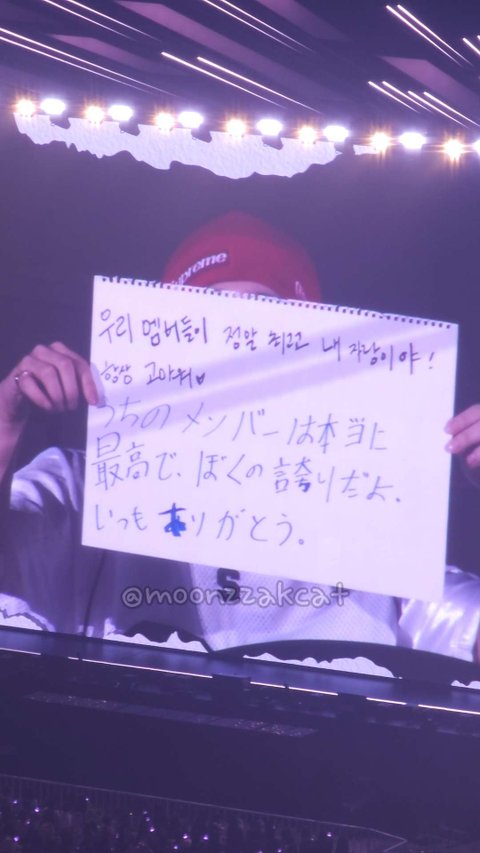 Supreme
우리 멤버들이 정말 최고 내 자랑이야!
항상 고마워♥
うちのメンバーは本当に
最高で、ぼくの誇りだよ、
いつもありがとう。
@moonzzakcat
S